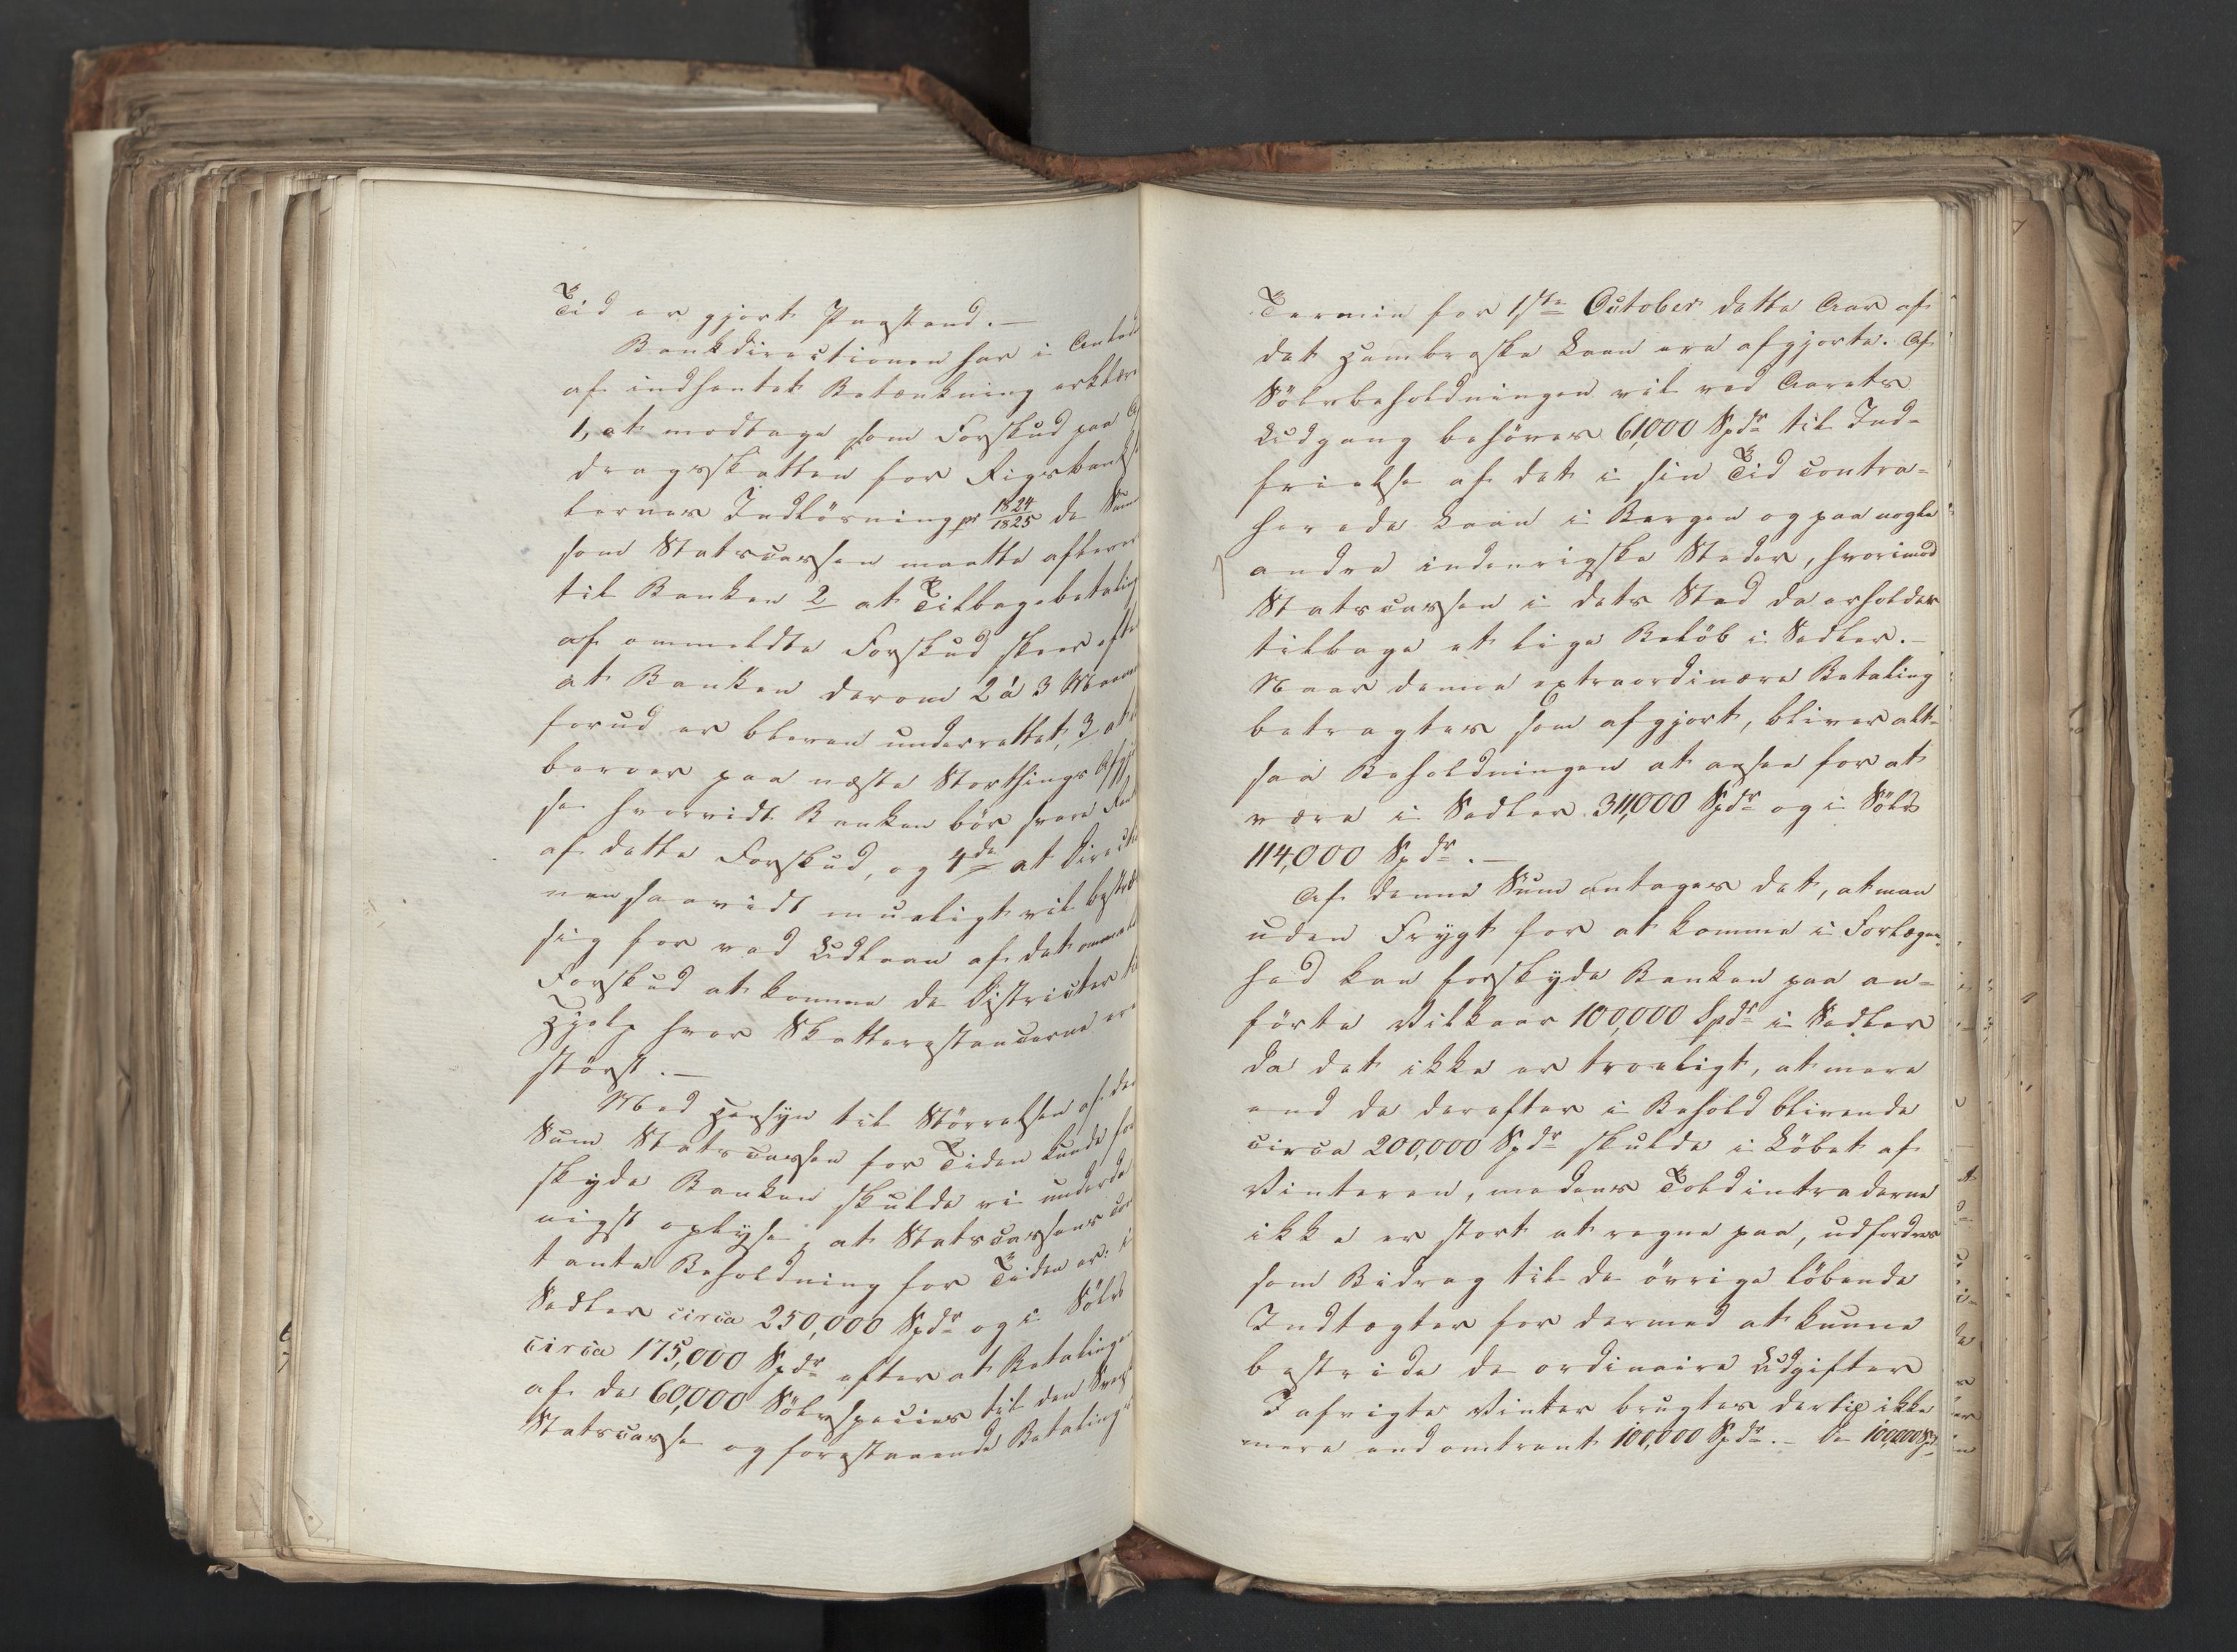 Tid er gjort Paastand. —
Bankdirectionen har i Anled
af indhentet Betænkning erklær
1, at modtage som Forskud paa
dragsskatten for Rigsbank
lernes Indlösning pr 1824/1825 de Sum
som Statscassen maatte aflever
til Banken 2 at Tilbagebetaling
af ommeldte Forskud skeer efter
at Banken derom 2 à 3 Maane
forud er bleven underrettet, 3 at
beroer paa næste Storthings Afgjö
se hvorvidt Banken bör svare
af dette Forskud, og 4de at Directi
nen saavidt mueligt vil bestræ
sig for ved Udlaan af det ommel
Forskud at komme de Districter til
Hjelp hvor Skatterestancerne ere
störst. —
Med Hensyn til Störrelsen af den
Sum Statscassen for Tiden kunde for
skyde Banken skulde vi underda
nigst oplyse, at Statscassens con
tante Beholdning for Tiden er: i
Sedler circa 250,000 Spdr og i Sölv
circa 175,000 Spdr efter at Betalingen
af de 60,000 Sölvspecier til den Svensk
Statscasse og forestaaende Betalings
Termin for 1ste October dette Aar af
det Hambroske Laan ere afgjorte. Af
Sölvbeholdningen vil ved Aarets
Udgang behöves 61,000 Spdr til Ind-
frielse af det i sin Tid contra-
herede Laan i Bergen og paa nogle
andre indenrigske Steder, hvorimod
Statscassen i dets Sted da erholder
tilbage et lige Belöb i Sedler. —
Naar denne extraordinære Betaling
betragtes som afgjort, bliver alt-
saa Beholdningen at ansee for at
være i Sedler 311,000 Spdr og i Sölv
114,000 Spdr. —
Af denne Sum antages det, at man
uden Frygt for at komme i Forlægen-
hed kan forskyde Banken paa an-
förte Vilkaar 100,000 Spdr i Sedler
da det ikke er troeligt, at mere
end de derefter i Behold blivende
circa 200,000 Spdr skulde i Löbet af
Vinteren, medens Toldintraderne
ikke er stort at regne paa, udfordres
som Bidrag til de övrige löbende
Indtægter for dermed at kunne
bestride de ordinaire Udgifter
I afvigte Vinter brugtes dertil ikke
mere end omtrent 100,000 Spdr. — De 100,000 Spdr